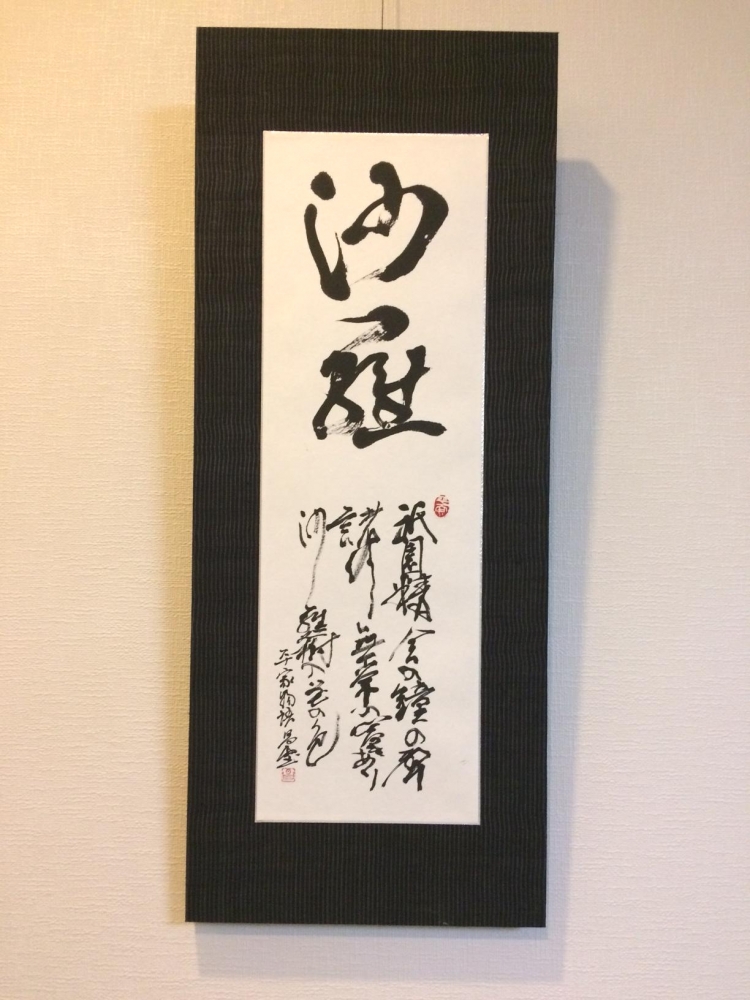 沙羅
祇園精舎の鐘の聲
諸行無常の響あり
沙羅樹の花の色
平家物語